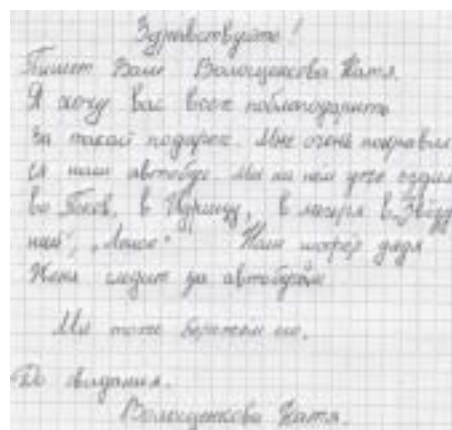 Здравствуйте!
Пишет Вам Волощенкова Катя.
Я хочу вас всех поблагодарить
за такой подарок. Мне очень понравил
ся наш автобус. Мы на нём уже ездили
во Псков, в в лагеря в Звёзд
ный, Наш шофёр дядя
Женя следит за автобусом
Мы тоже бережём его.
До свидания.
Волощенкова Катя.